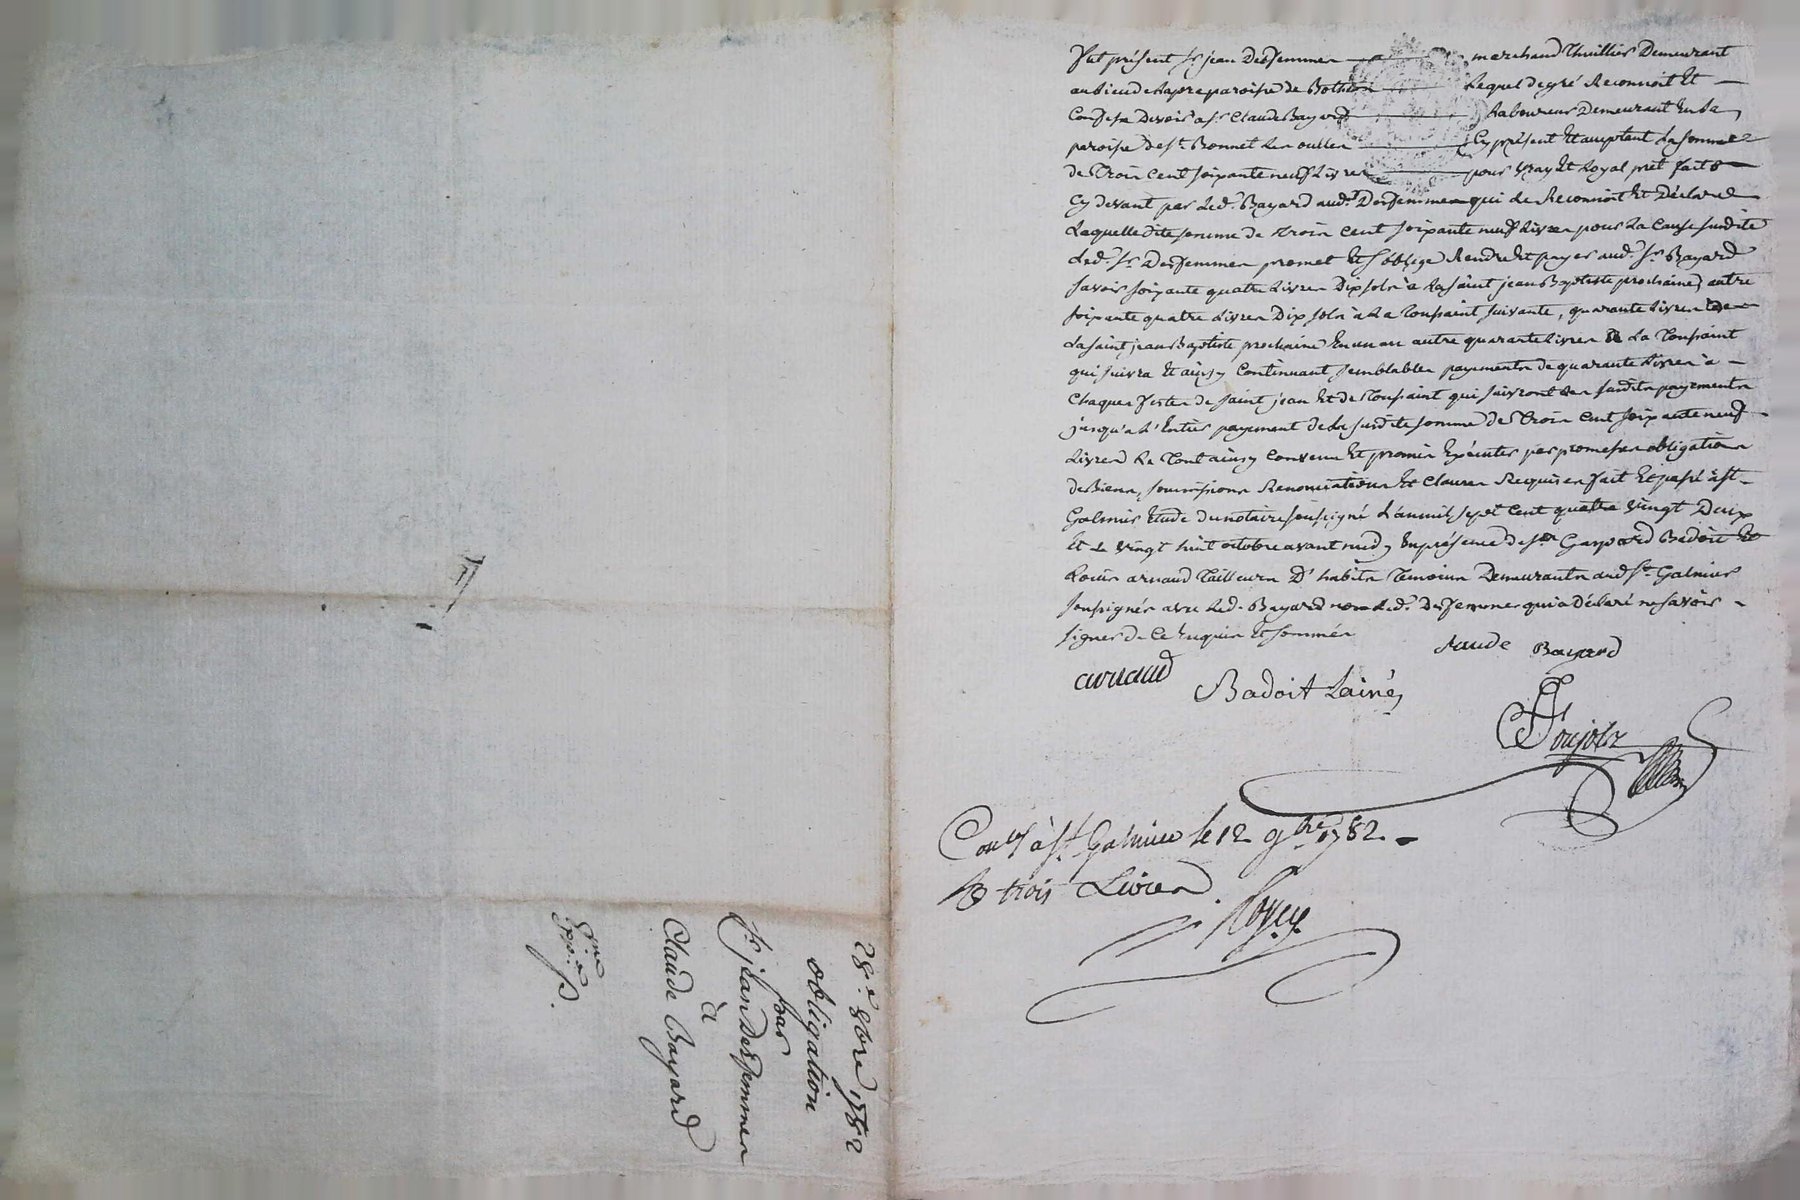 Fut présent sr jean Desfemmes marchand Thuillier Demeurant
au lieu de Lapra paroisse de Bothéon Lequel de gré Reconnoit Et
Confesse Devoir a sr Claude Bayard Laboureur Demeurant En La
paroisse de st Bonnet Les oulles Cy présent Et acceptant La somme
de Trois Cent soixante neuf Livres pour vray Et Loyal prêt fait
Cy devant par Led. Bayard aud. Desfemmes qui Le Reconnoit Et Déclare
Laquelle dite somme de trois Cent soixante neuf Livres pour La Cause susdite
Led. sr Desfemmes promet Et s'oblige Rendre Et payer aud. sr Bayard
savoir soixante quatre Livres Dix sols à La saint jean Baptiste prochaine, autre
soixante quatre Livres Dix sols à La Toussaint suivante, quarante Livres
La saint jean Baptiste prochaine En un an autre quarante Livres La Toussaint
qui suivra Et ainsy Continuant semblables payements de quarante Livres à
Chaques festes de saint jean Et de Toussaint qui suivront Les susdits payements
jusqu'a L'Entier payement de La susdite somme de Trois Cent soixante neuf
Livres Le Tout ainsy Convenu Et promis Exécuter par promesses obligation
de Biens, soumissions Renonciations Et Clauses Requises fait Et passé à st
Galmier Etude du notaire soussigné L'an mil sept Cent quatre vingt Deux
Et Le vingt huit octobre avant midy En présence de srs Gaspard Badoit Et
Louis arnaud Tailleurs D'habits Temoins Demeurants aud st Galmier
soussignés avec Led. Bayard non Led. Desfemmes qui a Déclaré ne savoir
signer de Ce Enquis Et sommés
Claude Bayard
arnaud
Badoit Lainé
Poujolz
Conlé à st Galmier le 12 9bre 1782
R trois Livres
28e 8bre 1782
obligation
par
sr jean Desfemmes
à
Claude Bayard